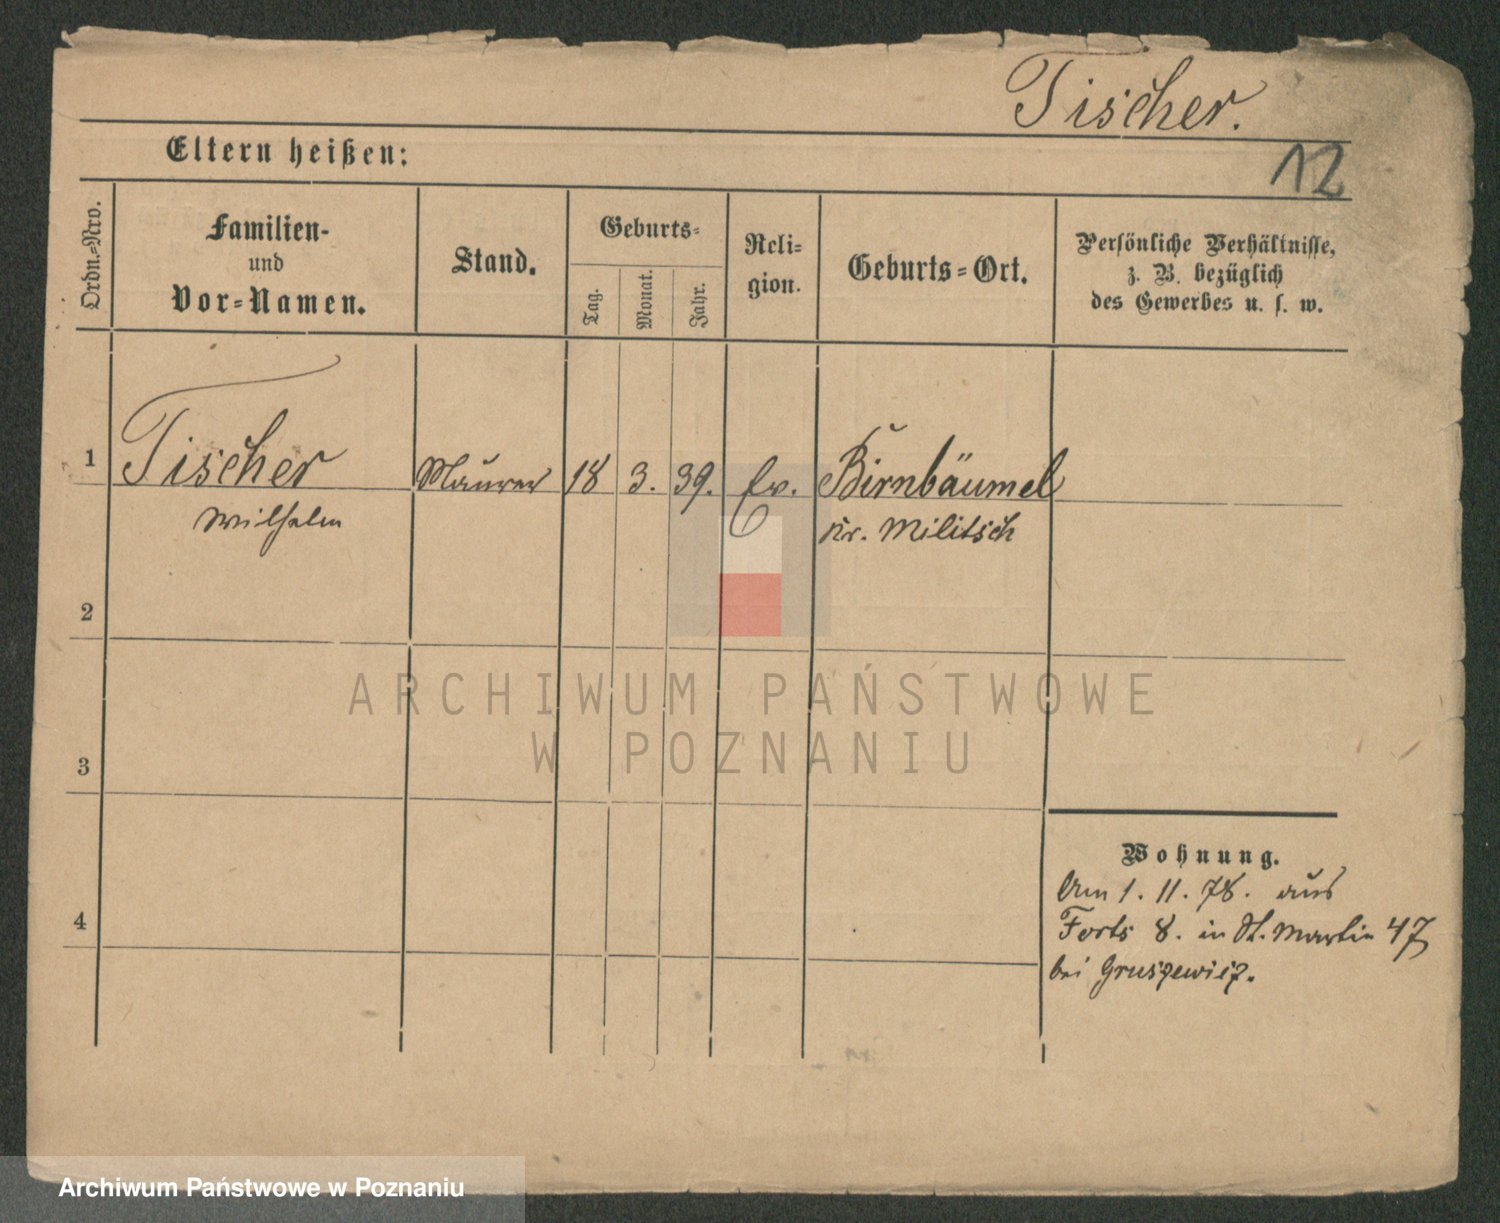 Tischer.
Eltern heißen:
12
Ordn.-Nro.
Familien-
und
Vor-Namen.
Stand.
Geburts-
Tag.
Monat.
Jahr.
Reli-
gion.
Geburts-Ort.
Persönliche Verhältnisse,
z. B. bezüglich
des Gewerbes u. s. w.
1 Tischer Maurer 18 3. 39. Ev. Birnbäumel
Wilhelm Kr. Militsch
2
ARCHIWUM PAŃSTWOWE
W POZNANIU
3
Wohnung.
Am 1. 11. 78. aus
4
Forts 8. in St. Martin 47
bei Gruszewicz.
Archiwum Państwowe w Poznaniu